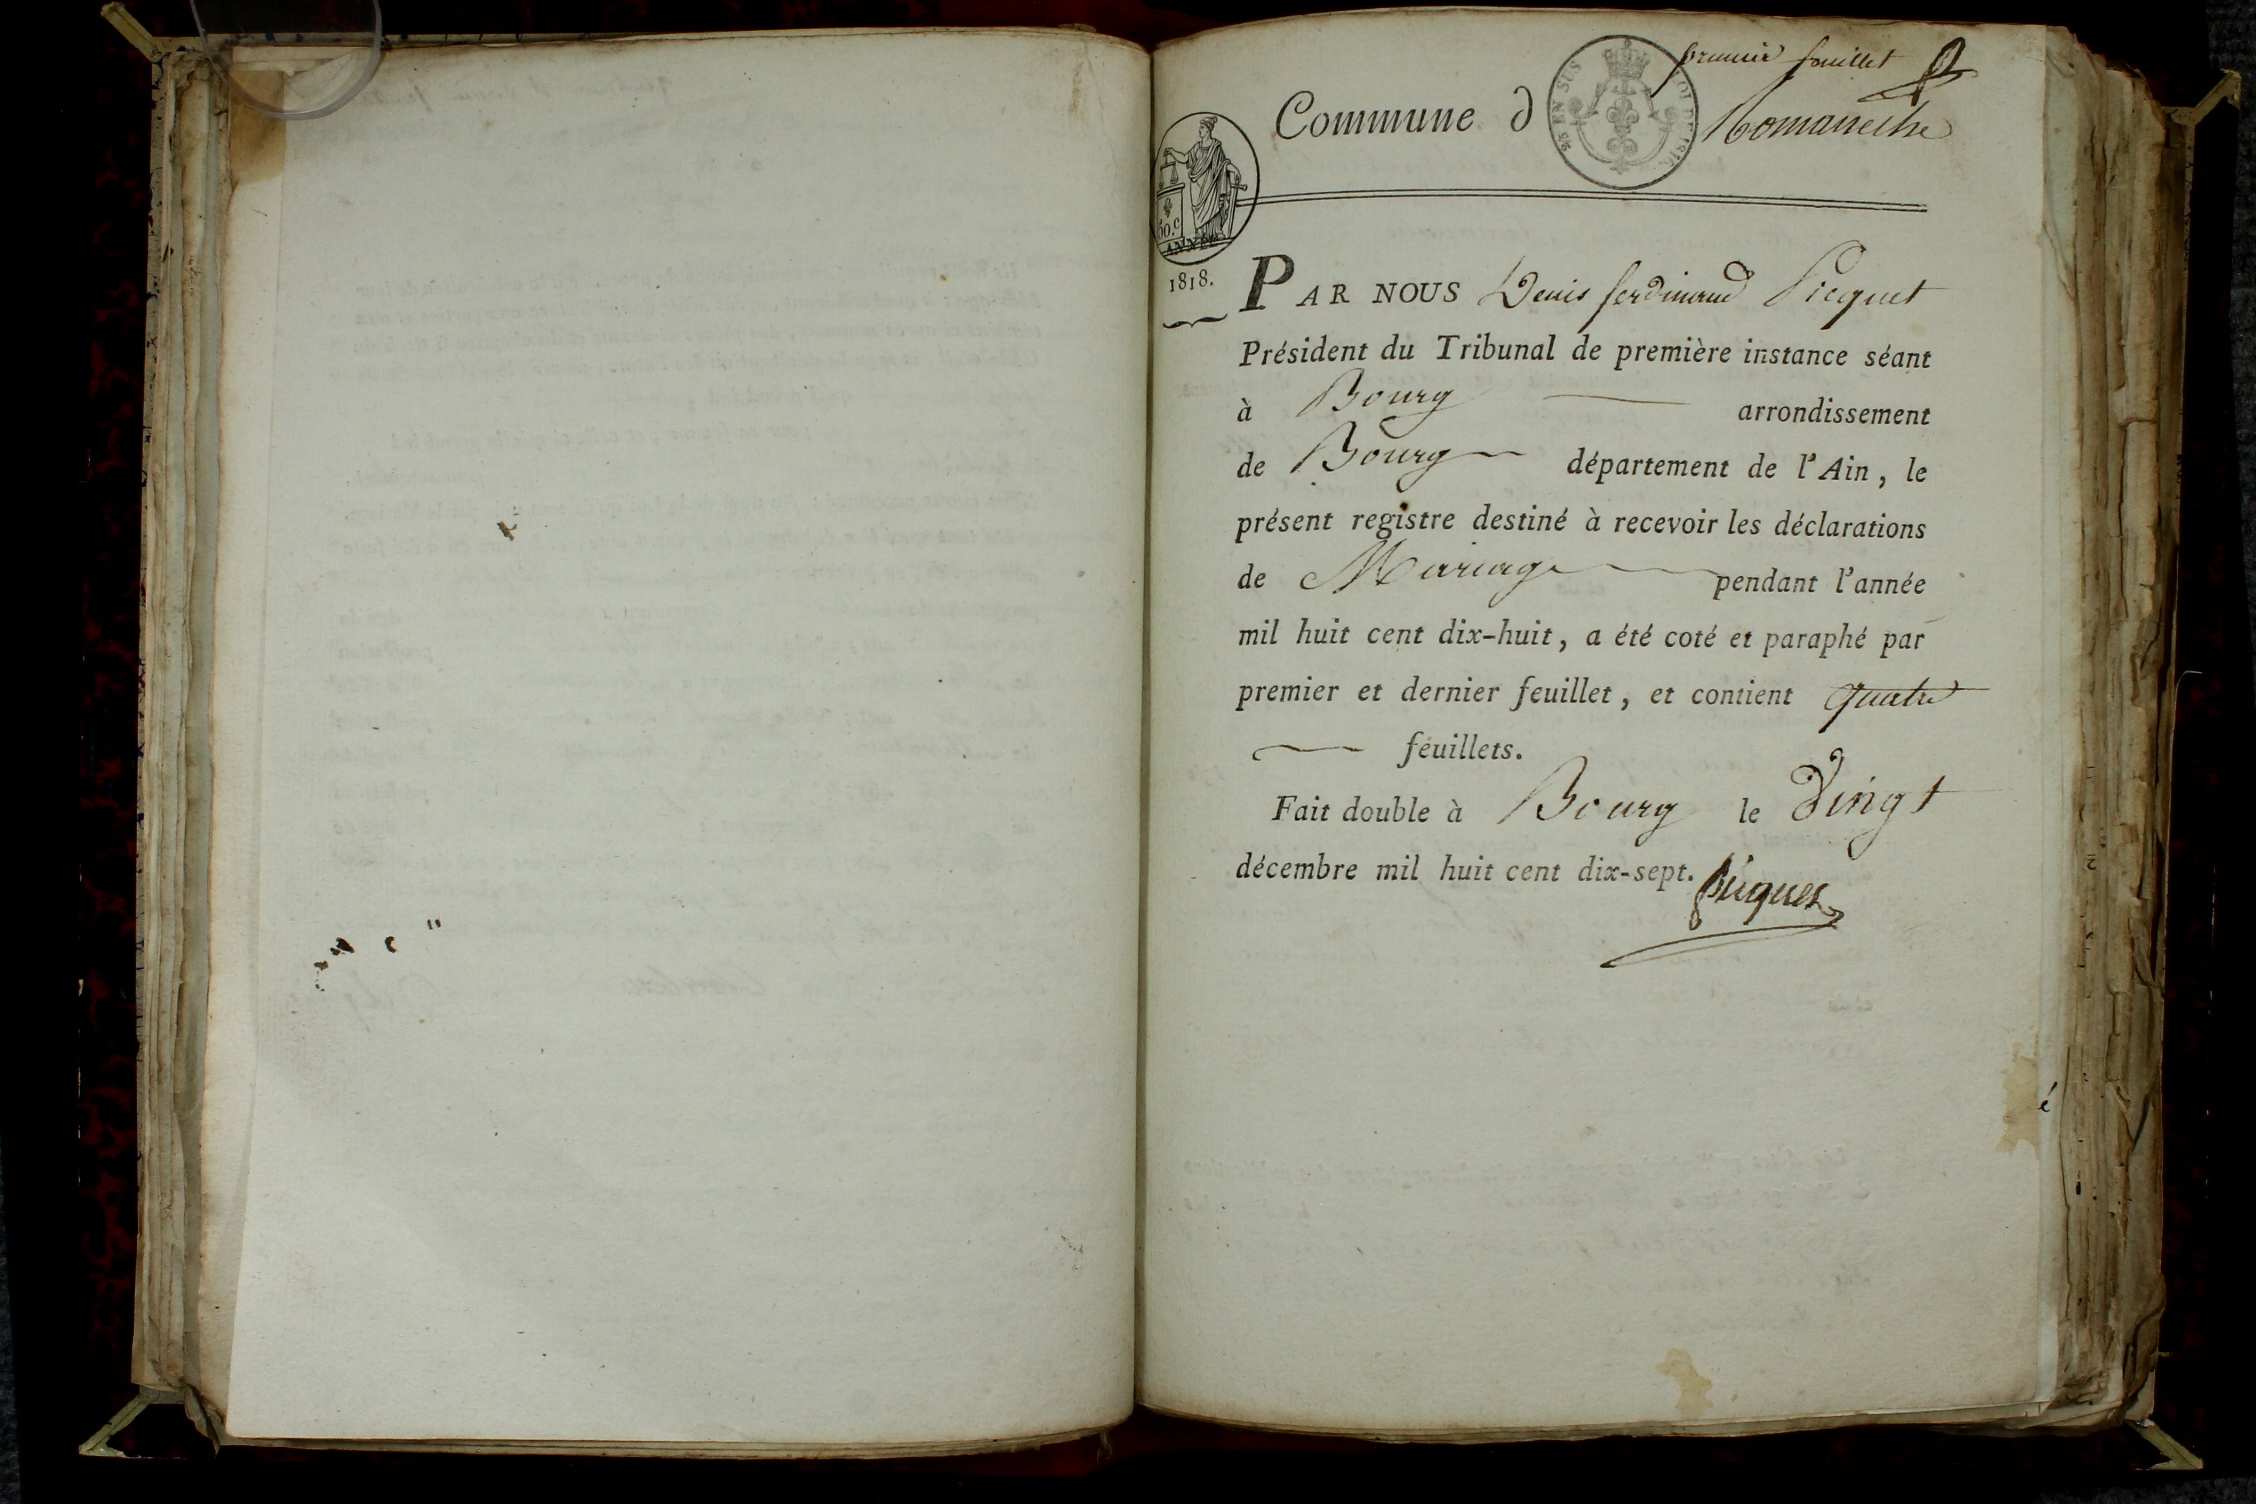 premier feuillet
Commune d Romaneche
EN SUS LOI DE 1816
50.c
ANNÉE
1818.
PAR NOUS Denis ferdinand Picquet
Président du Tribunal de première instance séant
à Bourg arrondissement
de Bourg département de l'Ain, le
présent registre destiné à recevoir les déclarations
de Mariage pendant l'année
mil huit cent dix-huit, a été coté et paraphé par
premier et dernier feuillet, et contient quatre
feuillets.
Fait double à Bourg le Vingt
décembre mil huit cent dix-sept.
Picquet